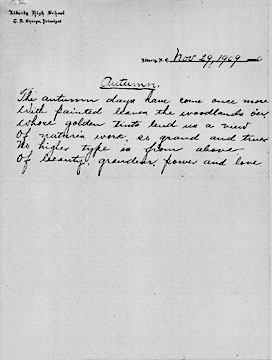 Liberty High School
Principal
Liberty, N. C. Nov 29, 1909
Autumn.
The autumn days have come once more
With painted leaves the woodlands o'er
Whose golden tints lend us a view
Of nature's work, so grand and true
No higher type is from above
Of beauty, grandeur, power and love